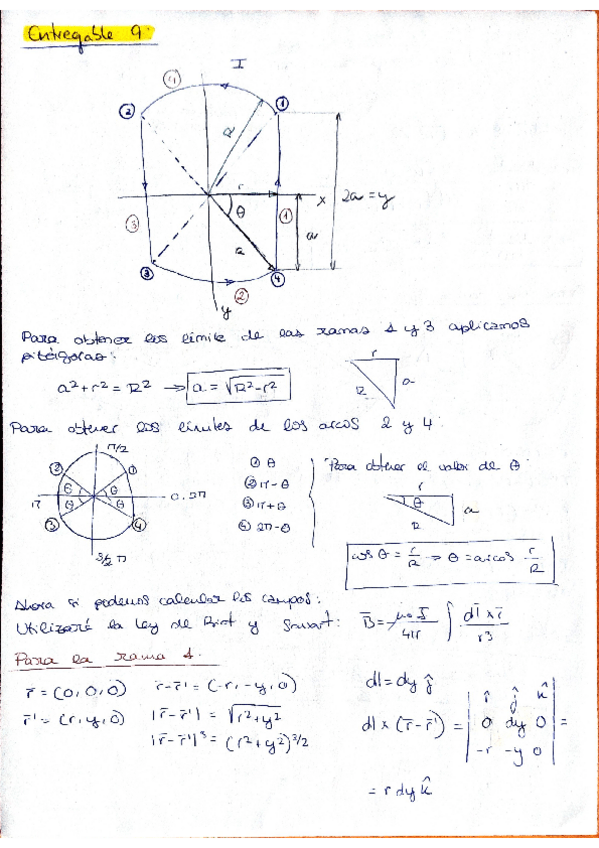 Entregable 9:
I
④
② ①
R
r x 2a = y
③ θ ① a
R
③ ④
②
y
Para obtener los límite de las ramas 1 y 3 aplicamos
pitágoras:
a² + r² = R² → a = √R²-r²
r
R a
Para obtener los límites de los arcos 2 y 4:
π/2
② ①
θ θ
π 0, 2π
θ θ
③ ④
3/2 π
① θ
② π - θ
③ π + θ
④ 2π - θ
Para obtener el valor de θ
r
θ a
R
cos θ = r/R → θ = arcos r/R
Ahora si podemos calcular los campos:
Utilizaré la Ley de Biot y Savart: B̄ = μ₀ I/4π ∫ dl̄ x r̄/r³
Para la rama 1.
r̄ = (0, 0, 0) r̄-r̄' = (-r, -y, 0) dl = dy ĵ
r̄' = (r, y, 0) |r̄-r̄'| = √r²+y² dl x (r̄-r̄') = | î ĵ k̂ |
| 0 dy 0 | =
|r̄-r̄'|³ = (r²+y²)^3/2 | -r -y 0 |
= r dy k̂